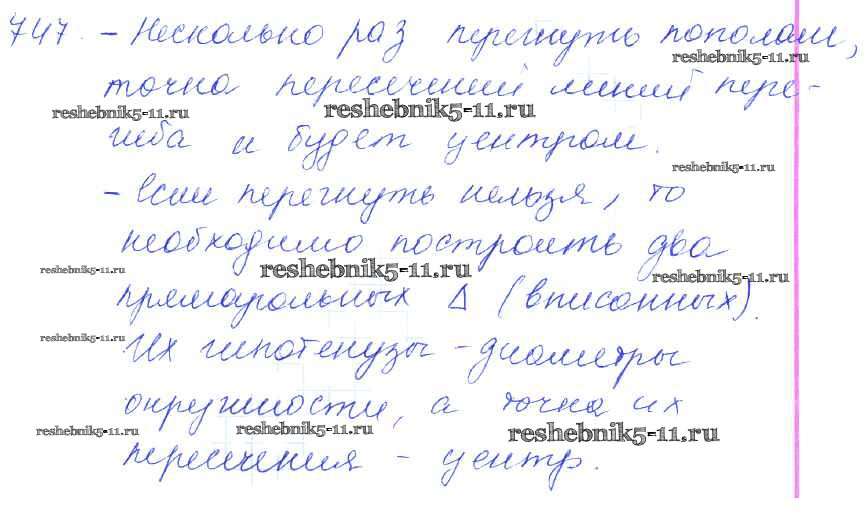 747. – Несколько раз перегнуть пополам,
reshebnik5-11.ru
точка пересечений линий пере-
reshebnik5-11.ru reshebnik5-11.ru
гиба и будет центром.
reshebnik5-11.ru
– Если перегнуть нельзя, то
необходимо построить два
reshebnik5-11.ru reshebnik5-11.ru reshebnik5-11.ru
прямоугольных Δ (вписанных).
reshebnik5-11.ru
Их гипотенузы – диаметры
окружности, а точка их
reshebnik5-11.ru reshebnik5-11.ru reshebnik5-11.ru
пересечения – центр.